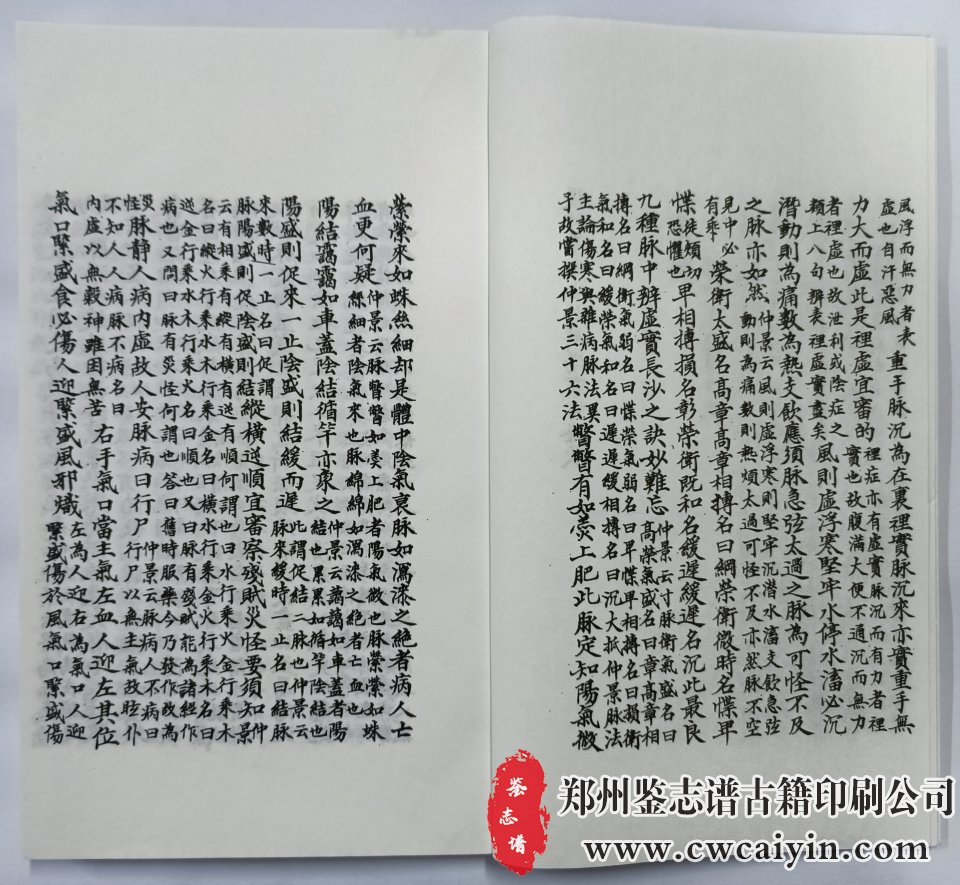 風浮而無力者表
虛也自汗惡風
重手脉沉為在裏裡實脉沉来亦實重手無
力大而虛此是裡虛宜審的
裡症亦有虛實脉沉而有力者裡
實也故腹滿大便不通沉而無力
者裡虛也故泄利或陰症之
類上八句辨表裡虛實盡矣
風則虛浮寒堅牢水停水滀必沉
潛動則為痛数為热支飲應須脉急弦太過之脉為可怪不及
之脉亦如然
仲景云風則虛浮寒則堅牢沉潛水滀支飲急弦
動則為痛数則热煩太過可怪不及亦然脉不空
見中必
有乘
榮衛太盛名髙章髙章相搏名曰綱榮衛微時名惵卑
惵
徒頰切
恐懼也
卑相搏損名彰榮衛既和名緩遲緩遲名沉此最良
九種脉中辨虛實長沙之訣妙難忘
仲景云寸脉衛氣盛名曰
髙榮氣盛名曰章髙章相
搏名曰綱衛氣弱名曰惵榮氣弱名曰卑惵卑相搏名曰損衛
氣和名曰緩榮氣和名曰遲遲緩相搏名曰沉大抵仲景脉法
主論傷寒與雜病脉法異
于故嘗撰仲景三十六法
瞥瞥有如羮上肥此脉定知陽氣微
縈縈来如蛛絲细却是體中陰氣衰脉如瀉漆之絶者病人亡
血更何疑
仲景云脉瞥瞥如羮上肥者陽氣微也脉縈縈如蛛
絲細者陰氣来也脉綿綿如瀉漆之絶者亡血也
陽結靄靄如車蓋陰結循竿亦衆之
仲景云藹藹如車蓋者陽
結也累累如循竿陰結也
陽盛則促来一止陰盛則結緩而遲
此謂促結二脉也仲景云
脉来緩時一止名曰結脉
来数時一止名曰促謂
脉陽盛則促陰盛則結
縱横逆順宜審察殘賊災怪要須知
仲
景
云有相乘有縱有横有逆有順何謂也曰水行乘火金行乘木
名曰縱火行乘水木行乘金名曰横水行乘金火行乘木名曰
逆金行乘水木行乘火名曰順也又曰脉有殘賊能為諸經作
病也又問曰脉有災怪何謂也答曰舊時服藥今乃發作故為
災
怪
脉静人病内虛故人安脉病曰行尸
仲景云脉病人不病曰
行尸以無主氣故眩仆
不知人人病脉不病名曰
内虛以無穀神雖困無苦
右手氣口當主氣左血人迎左其位
氣口緊盛食必傷人迎緊盛風邪熾
左為人迎右為氣口人迎
緊盛傷於風氣口緊盛傷
鉴志谱
郑州鉴志谱古籍印刷公司
www.cwcaiyin.com